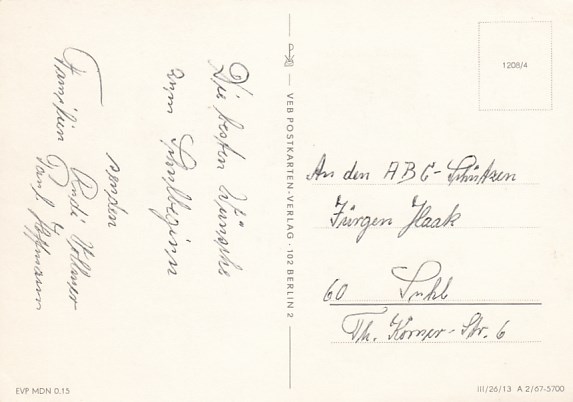 Die besten Wünsche
zum Schulbeginn
senden
Familien Rudi Vollmer
Paul Hoffmann
VEB POSTKARTEN-VERLAG · 102 BERLIN 2
1208/4
An den ABC-Schützen
Jürgen Haak
60 Suhl
Th. Körner-Str. 6
EVP MDN 0.15
III/26/13 A 2/67-5700